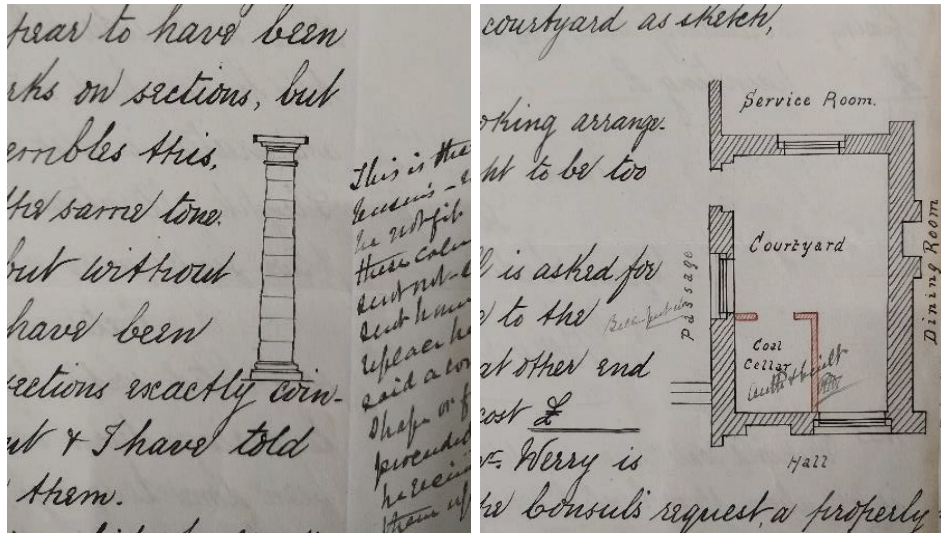 pear to have been
rks on sections, but
embles this,
the same tone.
but without
have been
sections exactly coin-
ut & I have told
them.
This is the
he not fit
these colu
sent not
replace he
said a co
shape or f
proceeded
he received
them up
courtyard as sketch,
oking arrange-
ht to be too
l is asked for
d to the
at other end
cost £
Werry is
he Consul's request, a properly
Service Room.
Courtyard
Passage
Dining Room
Coal
Cellar
Hall